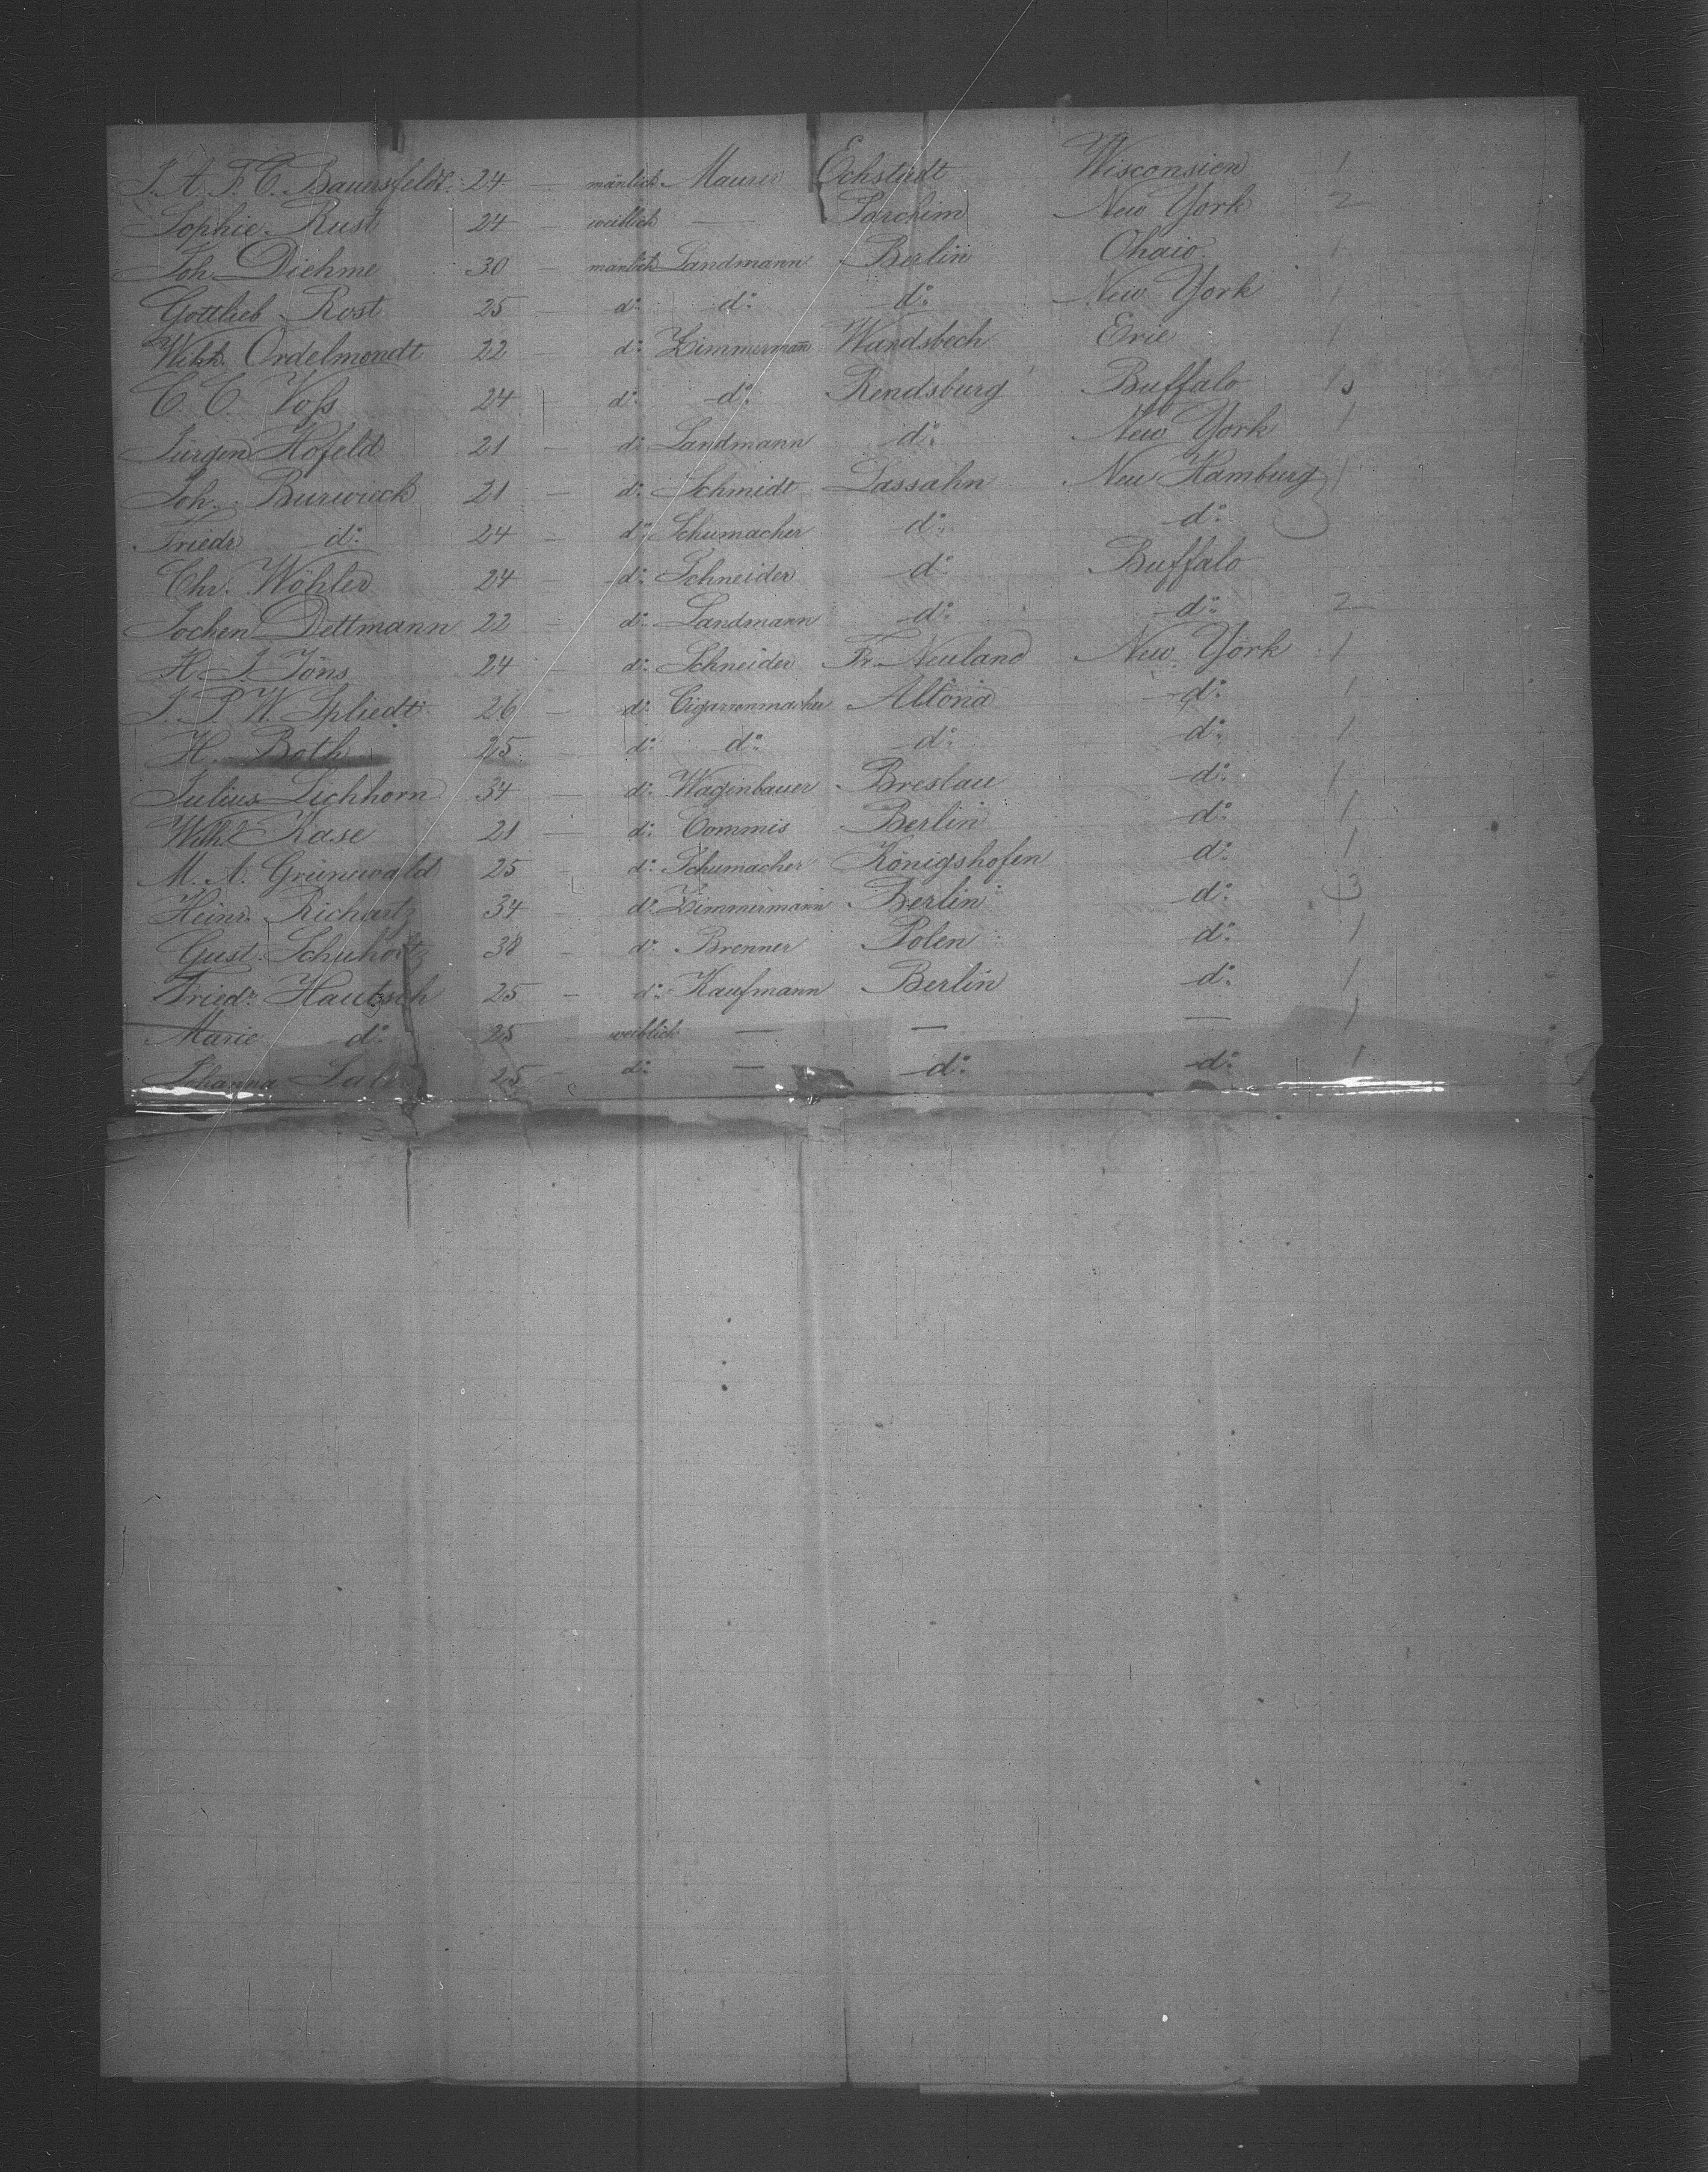 J. A. F. C. Bauersfeldt 24 — mänlich Maurer Echstedt Wisconsien 1
Sophie Rust 24 — weiblich — Parchim New York 2
Joh. Diehme 30 — mänlich Landmann Berlin Ohaio 1
Gottlieb Rost 25 — do. do. do. New York 1
Wilh. Ordelmondt 22 — do. Zimmermann Wandsbech Erie 1
C. C. Voss 24 — do. do. Rendsburg Buffalo 1
Jürgen Hofeld 21 — do. Landmann do. New York 1
Joh. Burwieck 21 — do. Schmidt Lassahn New Hamburg 1
Friedr. do. 24 — do. Schumacher do. do.
Chr. Wöhler 24 — do. Schneider do. Buffalo
Jochen Dettmann 22 — do. Landmann do. do. 2
H. J. Jöns 24 — do. Schneider Fr. Neuland New York 1
J. P. W. Spliedt 26 — do. Cigarrenmacher Altona do. 1
H. Both 25 — do. do. do. do. 1
Julius Eichhorn 34 — do. Wagenbauer Breslau do. 1
Wilh. Kase 21 — do. Commis Berlin do. 1
M. A. Grünewald 25 — do. Schumacher Königshofen do. 1
Heinr. Richartz 34 — do. Zimmermann Berlin do. 3
Gust. Schuholtz 38 — do. Brenner Polen do. 1
Friedr. Hautzsch 25 — do. Kaufmann Berlin do. 1
Marie do. 25 — weiblich — — — 1
Johanna 25 — do. — do. do. 1